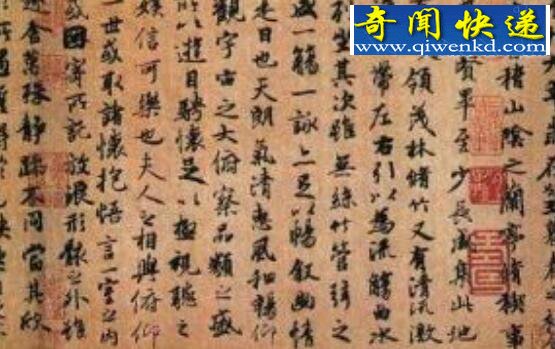 奇闻快递
www.qiwenkd.com
稽山陰之蘭亭脩稧事
賢畢至少長咸集此地
領茂林脩竹又有清流激
帶左右引以為流觴曲水
列坐其次雖無絲竹管弦之
盛一觴一詠亦足以暢敘幽情
是日也天朗氣清惠風和暢仰
觀宇宙之大俯察品類之盛
所以遊目騁懷足以極視聽之
娛信可樂也夫人之相與俯仰
一世或取諸懷抱悟言一室之內
或因寄所託放浪形骸之外雖
趣舍萬殊靜躁不同當其欣